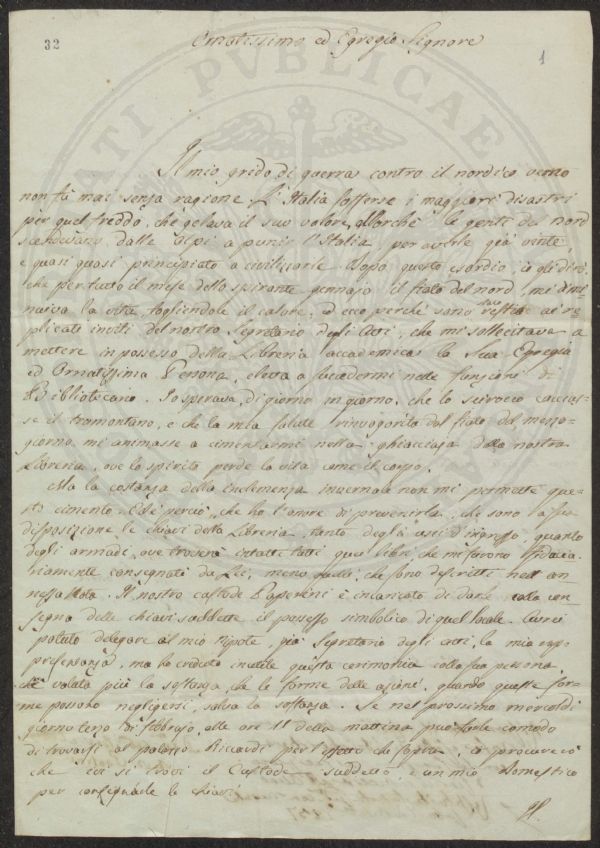 32
Ornatissimo ed Egregio Signore
1
Il mio grido di guerra contro il nordico vento
non fu mai senza ragione. L'Italia sofferse i maggiori disastri
per quel freddo, che gelava il suo valore, allorchè le genti del nord
scendevano dalle alpi a punir l'Italia per averle già vinte
e quasi quasi principiato a civilizzarle. Dopo questo esordio, io gli dirò,
che per tutto il mese dello spirante gennajo il fiato del nord mi dimi-
nuiva la vita togliendole il calore, ed ecco perchè sono stato restio ai re-
plicati inviti del nostro Segretario degli Atti, che mi sollecitava a
mettere in possesso della Libreria accademica la Sua Egregia
ed Ornatissima Persona, eletta a succedermi nelle funzioni di
Bibliotecario. Io sperava, di giorno in giorno, che lo scirocco caccias-
se il tramontano, e che la mia salute rinvigorita dal fiato del mezzo-
giorno mi animasse a cimentarmi nella ghiacciaja della nostra
Libreria, ove lo spirito perde la vita come il corpo.
Ma la costanza della inclemenza invernale non mi permette que-
sto cimento. Ed è perciò, che ho l'onore di prevenirla, che sono a sua
disposizione le chiavi della Libreria, tanto degli usci d'ingresso, quanto
degli armadi, ove troverà intatti tutti quei libri che mi furono fiducia-
riamente consegnati da Lei, meno quelli, che sono descritti nell'an-
nessa Nota. Il nostro custode Paperini è incaricato di dare colla con-
segna delle chiavi suddette il possesso simbolico di quel locale. Avrei
potuto delegare al mio Nipote, già Segretario degli atti, la mia rap-
presentanza, ma ho creduto inutile questa cerimonia colla sua persona,
che valuta più la sostanza, che le forme delle azioni, quando queste for-
me possono negligersi, salva la sostanza. Se nel prossimo mercoldì
giorno terzo di febbrajo, alle ore 11 della mattina può farle comodo
di trovarsi al palazzo Riccardi per l'effetto che sopra, io procurerò
che ivi si trovi il Custode suddetto, e un mio Domestico
per consegnarle le chiavi.